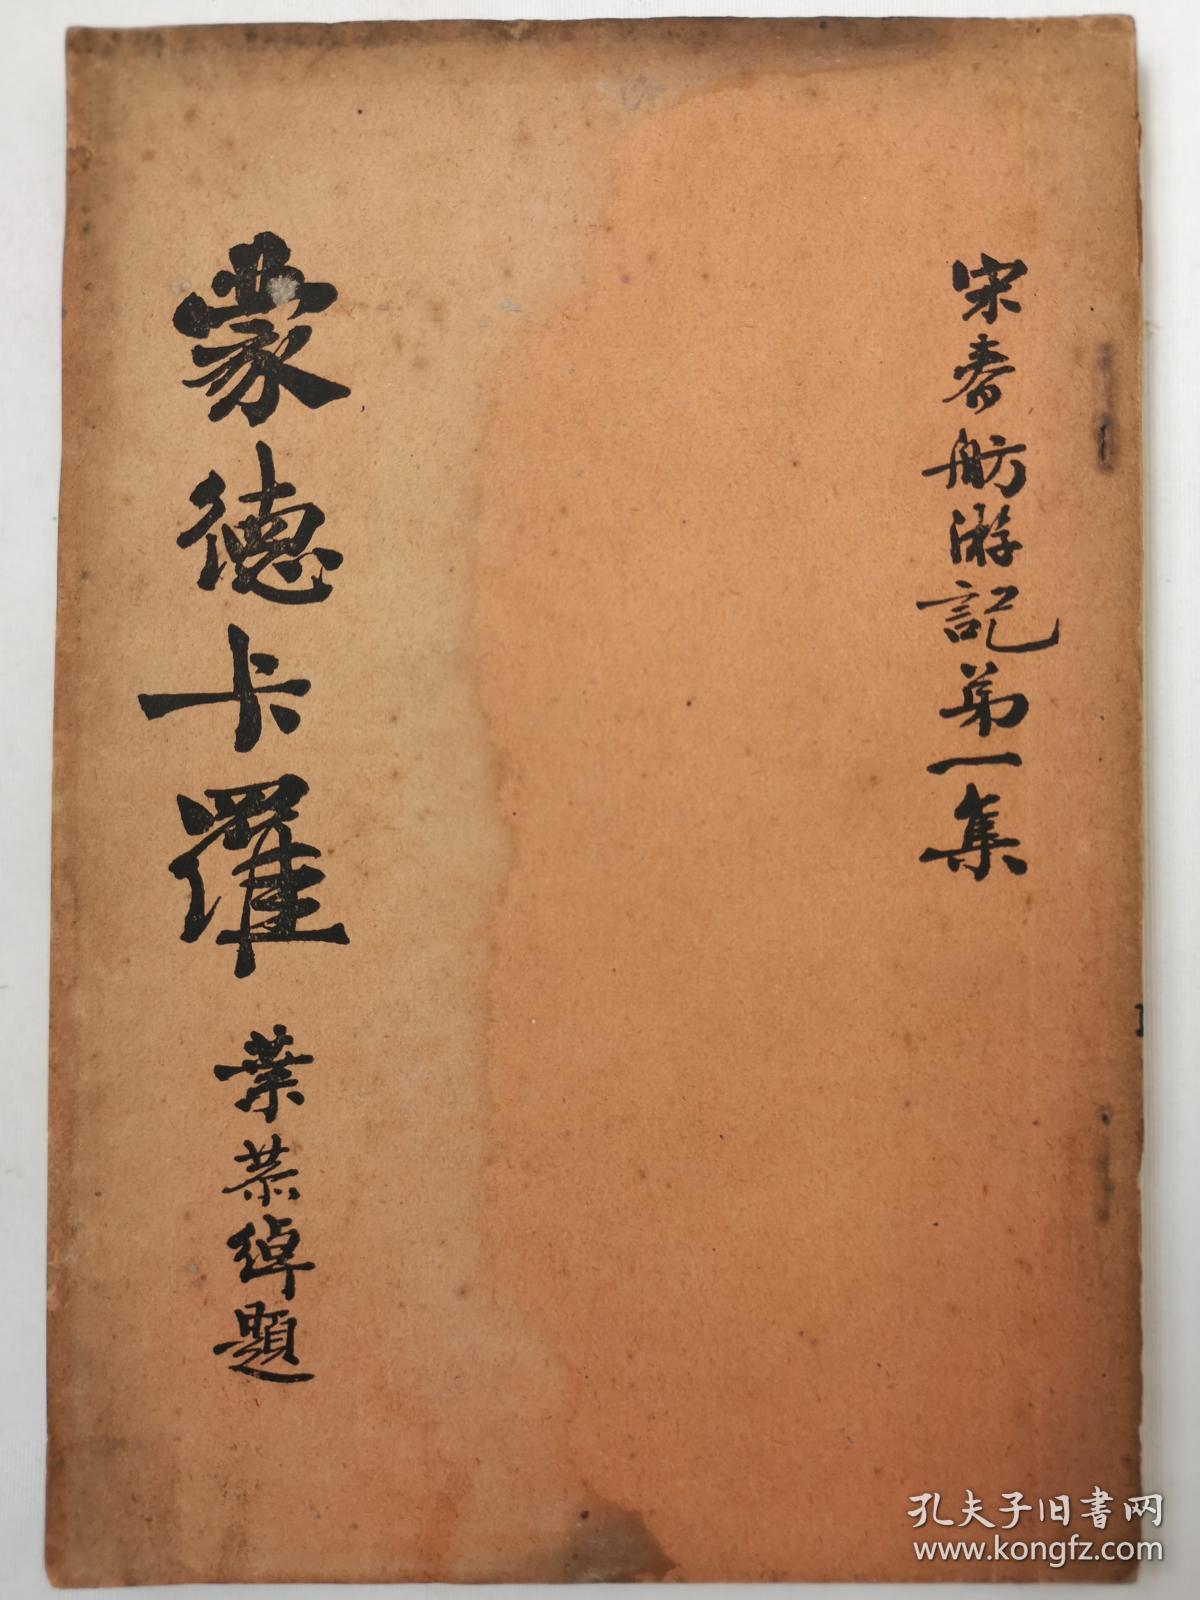 宋春舫游記弟一集
蒙德卡羅
葉恭綽題
孔夫子旧書网
www.kongfz.com